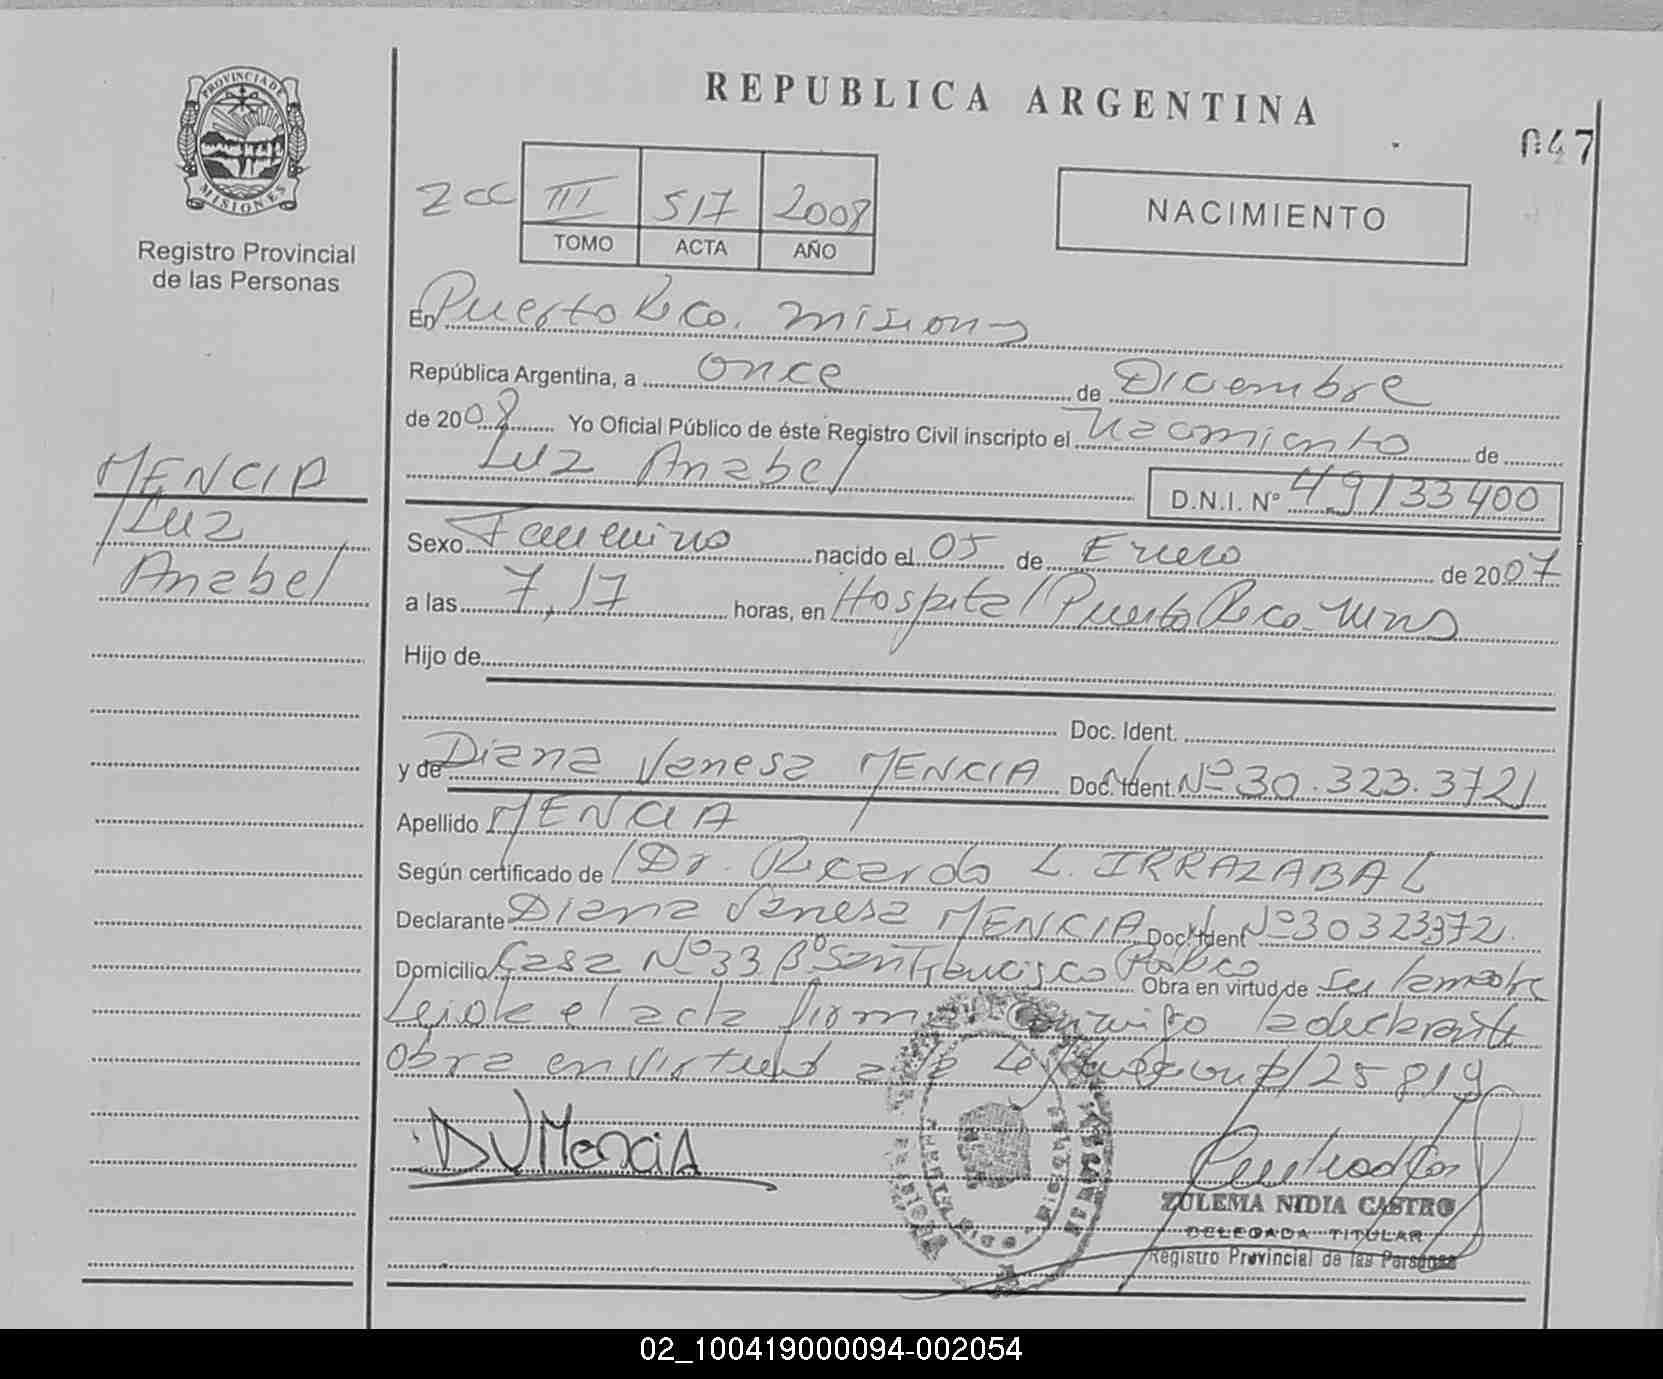 PROVINCIA DE
MISIONES
Registro Provincial
de las Personas
REPUBLICA ARGENTINA
047
2cc III 517 2008
TOMO ACTA AÑO
NACIMIENTO
En Puerto Rico. Misiones
República Argentina, a once de Diciembre
de 2008 Yo Oficial Público de éste Registro Civil inscripto el Nacimiento de
Luz Anabel D.N.I. Nº 49133400
MENCIA
Luz
Anabel
Sexo Femenino nacido el 05 de Enero de 2007
a las 7,17 horas, en Hospital Puerto Rico Mns
Hijo de
Doc. Ident.
y de Diana Vanesa MENCIA Doc. Ident. Nº 30.323.372
Apellido MENCIA
Según certificado de Dr. Ricardo L. IRRAZABAL
Declarante Diana Vanesa MENCIA Doc. Ident Nº 30323372
Domicilio Casa Nº 33 Bº San Francisco Pto Rico Obra en virtud de ser la madre
Leida el acta firma conmigo la declarante
obra en virtud a la Ley 25819
DVMencia
ZULEMA NIDIA CASTRO
DELEGADA TITULAR
Registro Provincial de las Personas
02_100419000094-002054